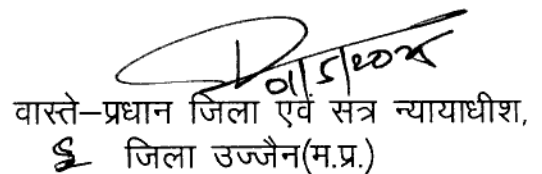 वास्ते–प्रधान जिला एवं सत्र न्यायाधीश,
जिला उज्जैन(म.प्र.)